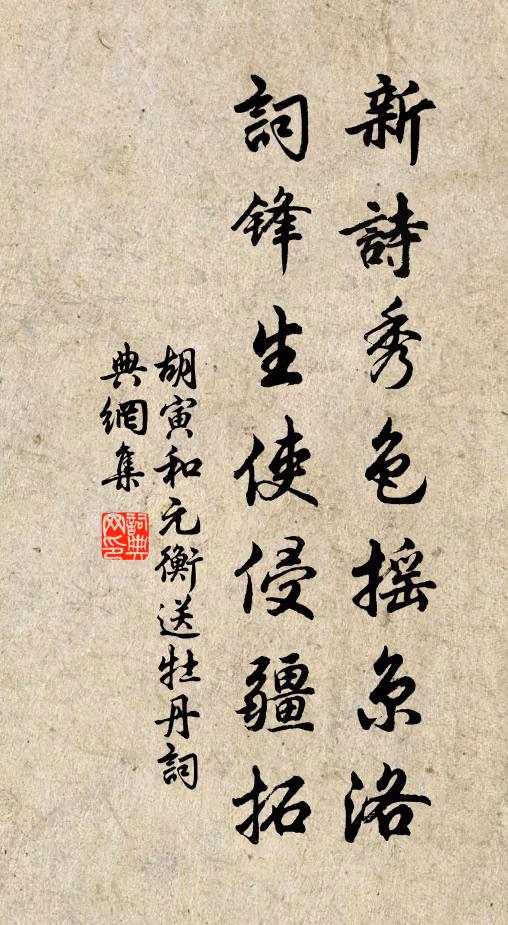 新詩秀色摇京洛
詞锋生使侵疆拓
胡寅和元衡送牡丹詞
典網集
詞典
网印